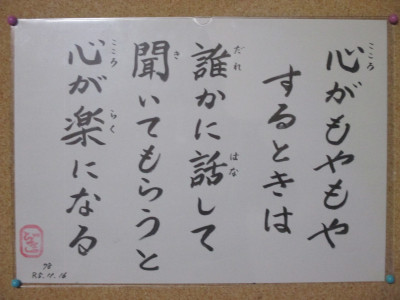 心がもやもや
するときは
誰かに話して
聞いてもらうと
心が楽になる
こころ
だれ
はな
き
こころ
らく
R5.11.16